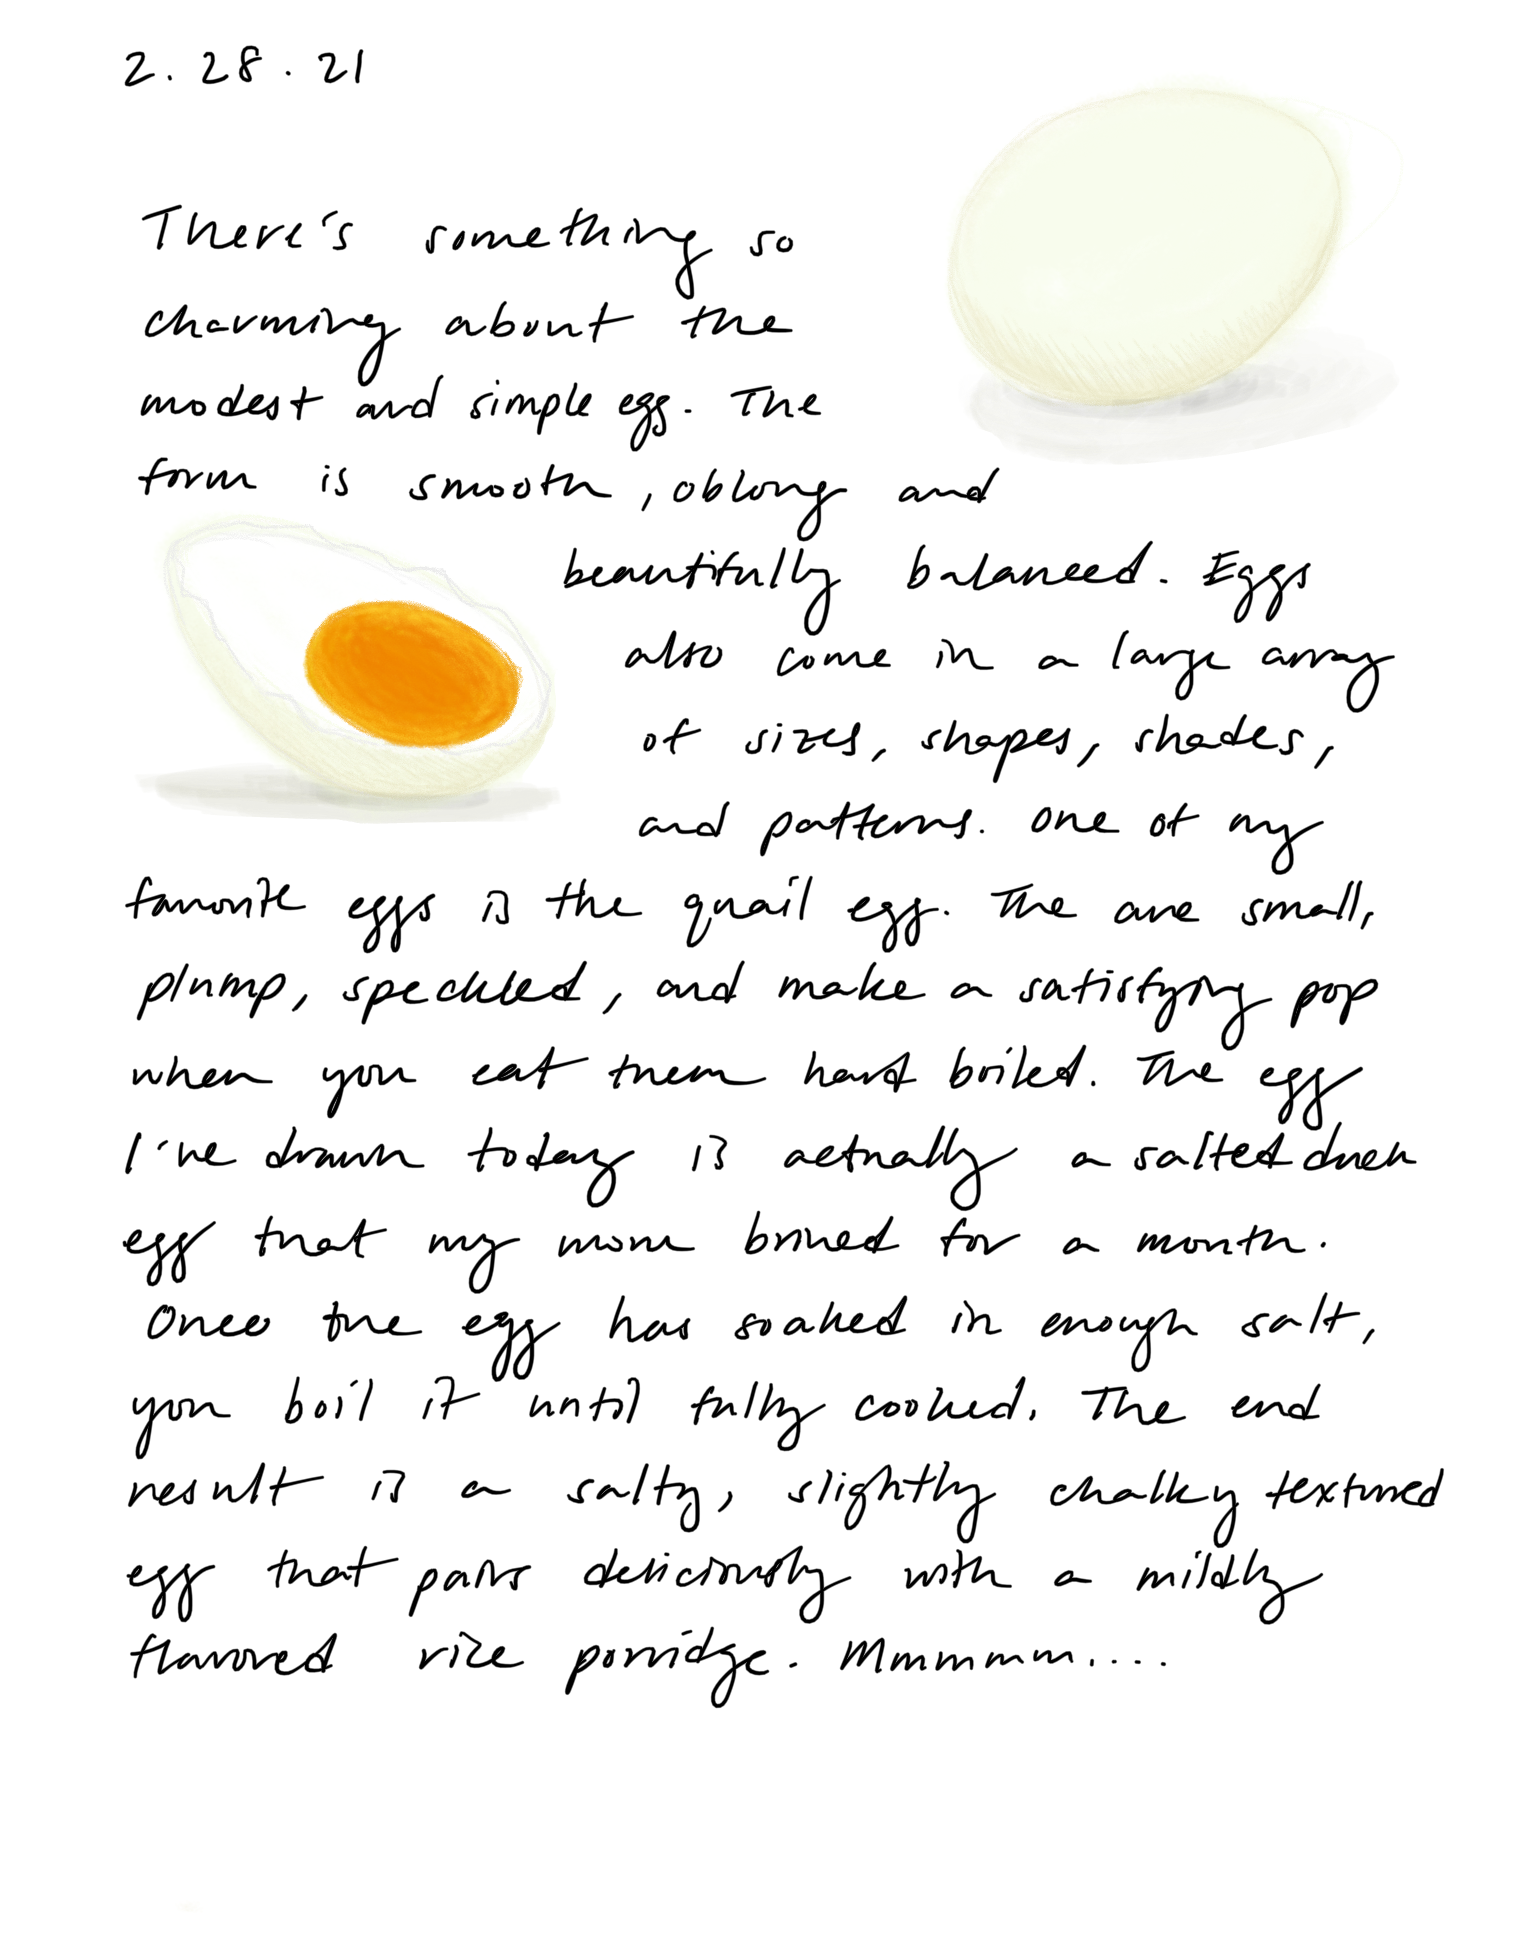 2.28.21
There's something so
charming about the
modest and simple egg. The
form is smooth, oblong and
beautifully balanced. Eggs
also come in a large array
of sizes, shapes, shades,
and patterns. One of my
favorite eggs is the quail egg. The are small,
plump, speckled, and make a satisfying pop
when you eat them hard boiled. The egg
I've drawn today is actually a salted duck
egg that my mom brined for a month.
Once the egg has soaked in enough salt,
you boil it until fully cooked. The end
result is a salty, slightly chalky textured
egg that pairs deliciously with a mildly
flavored rice porridge. Mmmmmm.....